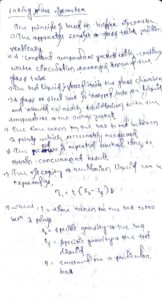 falling sphere viscometer
The principle is based on hoppler viscometer
The apparatus consist of a glass tube position
vertically
A constant temperature jacket with constant
water circulation arranged around the
glass tube
Test liquid is placed inside the glass chamber
A glass or steel ball is dropped into the liquid
and allowed to reach equilibrium with the
temperature of the outer jacket
The time taken by the ball to fall between
2 points which accurately measured
The process is repeated several times to
obtain concurrent result
The viscosity of newtonian liquid can be
expressed,
η = t (Sb - Sf) B
where t = time taken for the ball to fall
b/w 2 points
Sb = specific gravity of the ball
Sf = specific gravity of the test
liquid
B = constant for a particular
ball